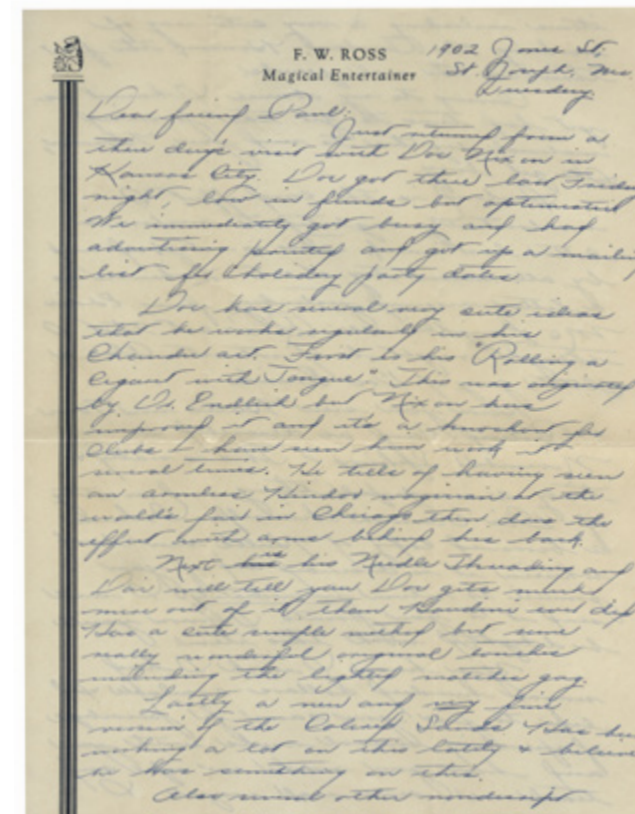 F. W. ROSS
Magical Entertainer
1902 Jones St.
St Joseph, Mo
Tuesday
Dear friend Paul:
Just returned from a
three day's visit with Doc Nixon in
Kansas City. Doc got there last Friday
night, low in funds but optimistic
We immediately got busy and had
advertising printed and got up a mailing
list for holiday party dates
Doc has several very cute ideas
that he works regularly in his
Chandu act. First is his "Rolling a
Cigaret with Tongue" This was originated
by Dr. Endlich but Nixon has
improved it and it's a knockout for
Clubs - have seen him work it
several times. He tells of having seen
an armless Hindoo magician at the
world's fair in Chicago then does the
effect with arms behind his back.
Next his Needle Threading and
will tell you Doc gets much
more out of it than Houdini ever did
Has a cute simple method but some
really wonderful original touches
including the lighted matches gag.
Lastly a new and very fine
version of the Colored Sands Has been
working a lot on this lately & believe
he has something on this.
Also several other nondescript